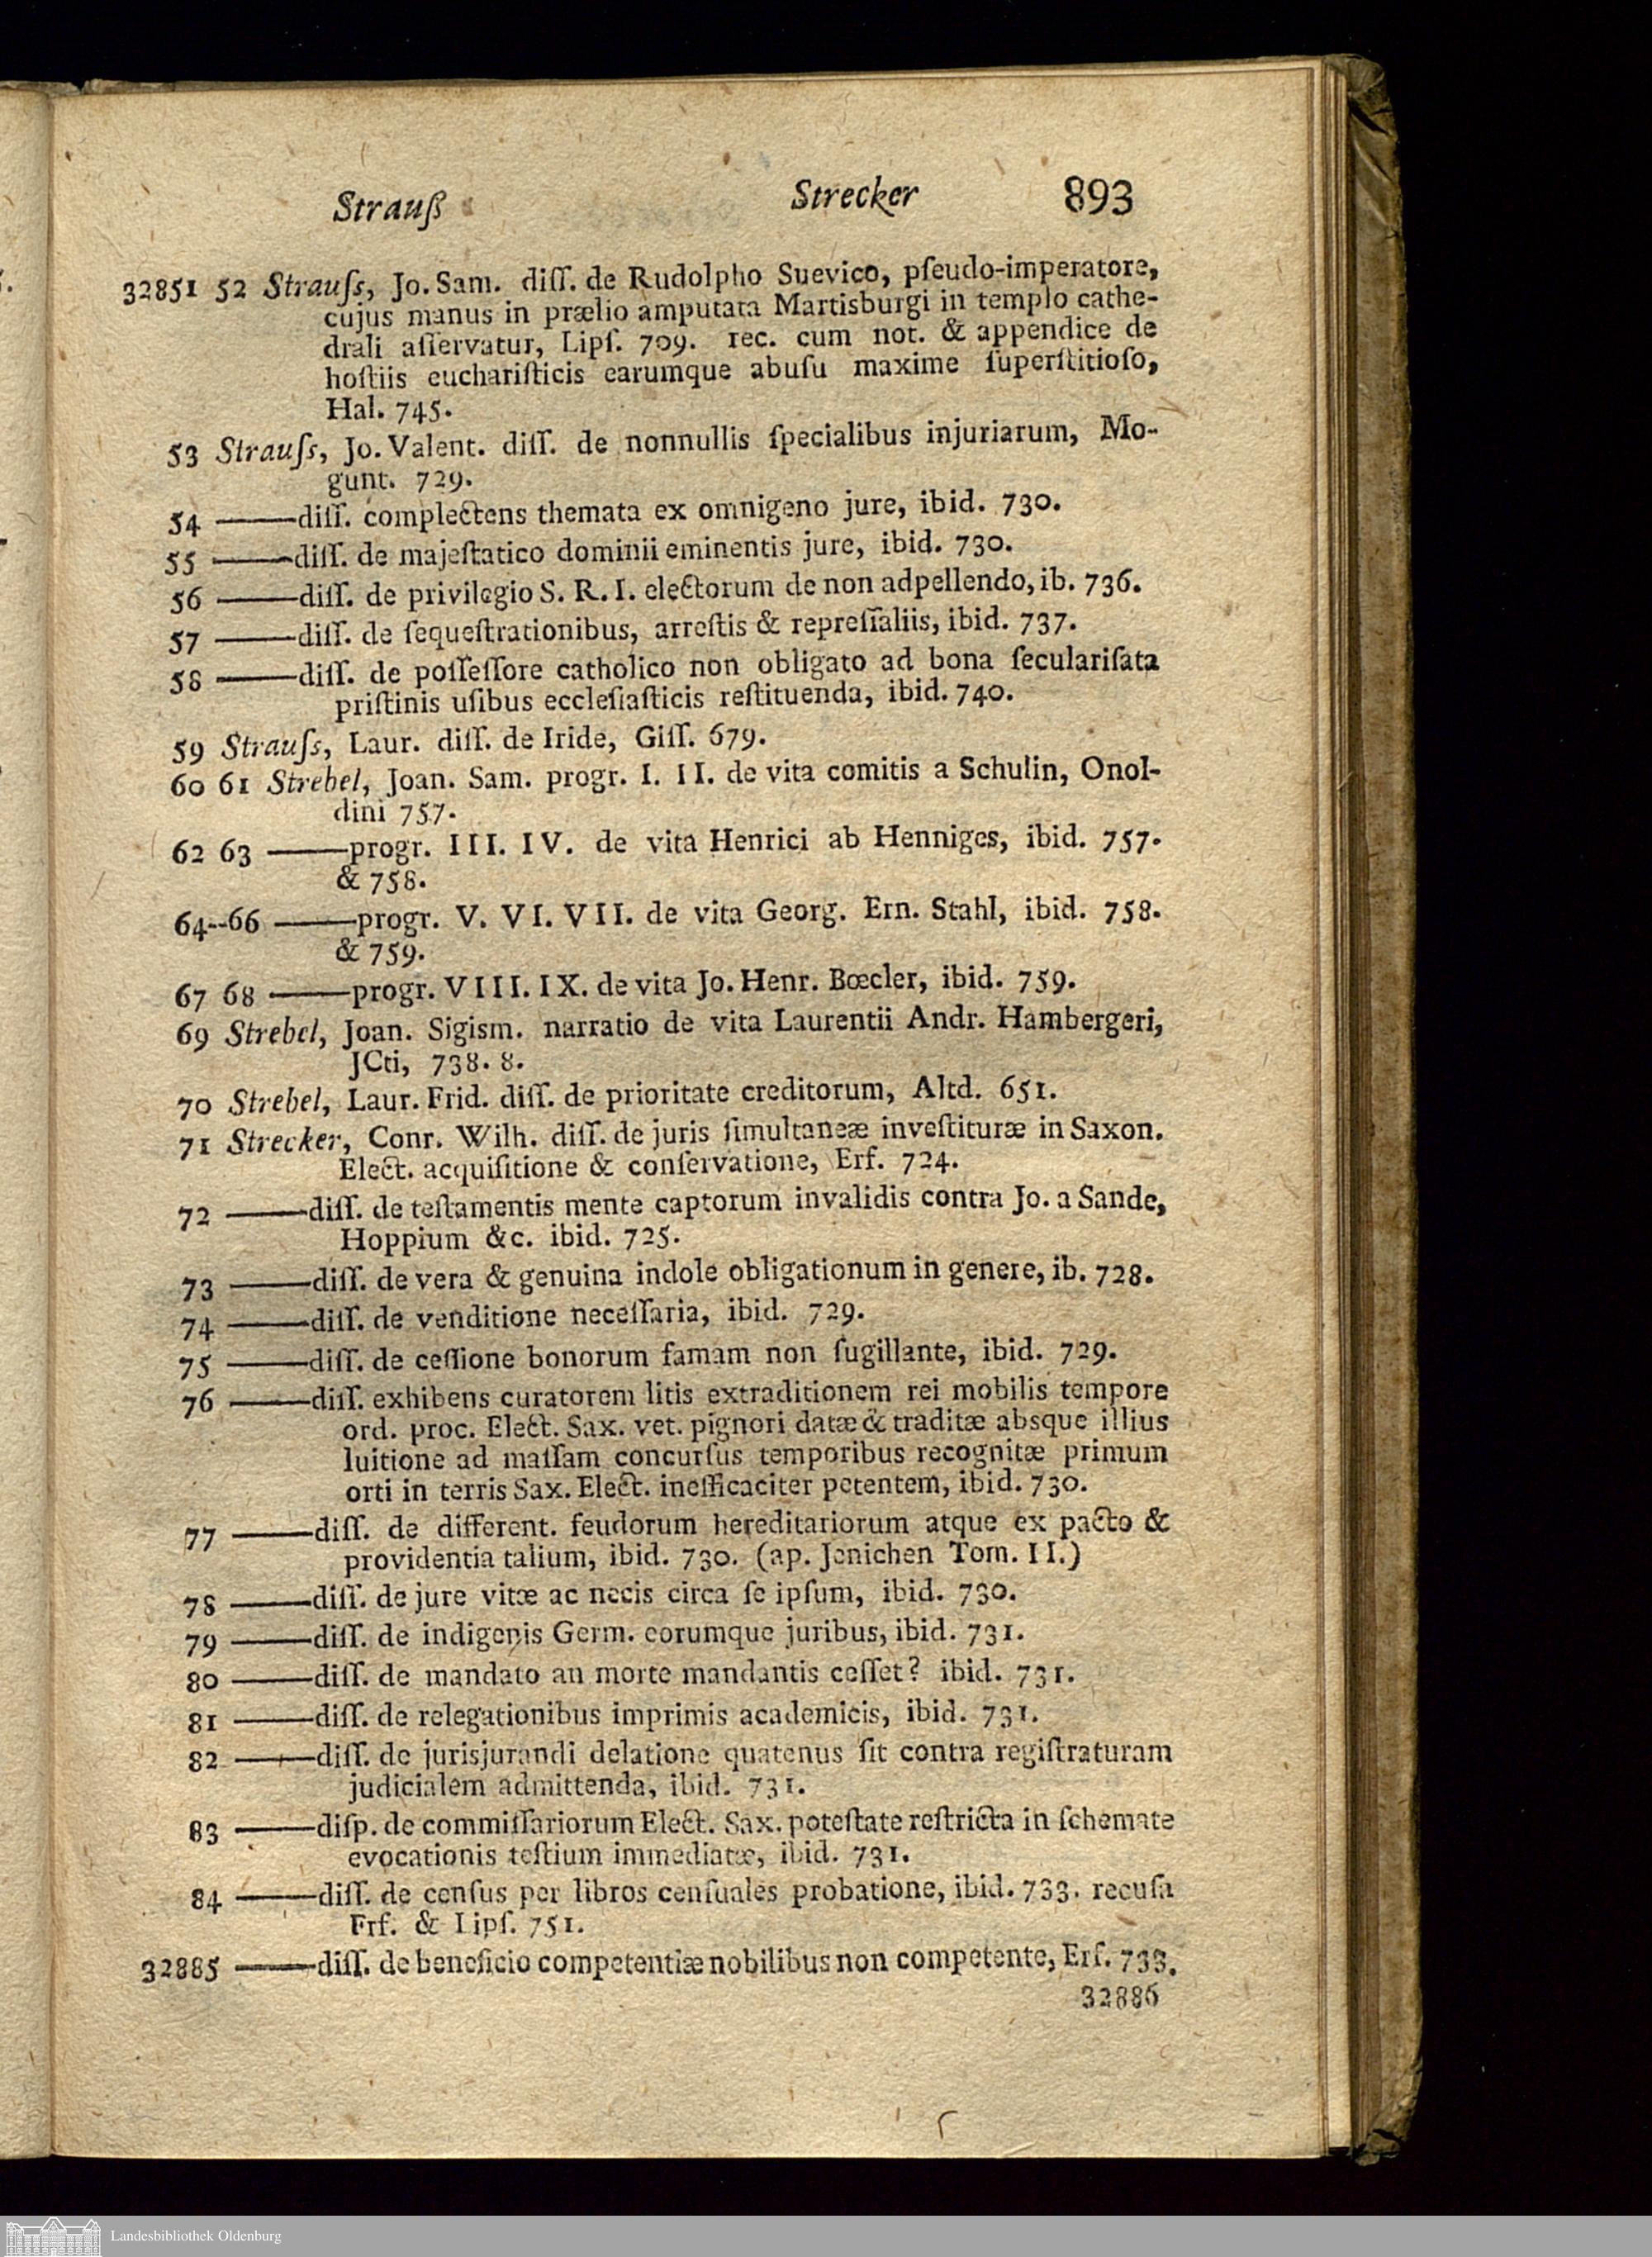 Strauß Strecker 893
32851 52 Strauſs, Jo. Sam. diſſ. de Rudolpho Suevico, pſeudo-imperatore,
cujus manus in prælio amputata Martisburgi in templo cathe-
drali aſſervatur, Lipſ. 709. rec. cum not. & appendice de
hoſtiis euchariſticis earumque abuſu maxime ſuperſtitioſo,
Hal. 745.
53 Strauſs, Jo. Valent. diſſ. de nonnullis ſpecialibus injuriarum, Mo-
gunt. 729.
54 ——diſſ. complectens themata ex omnigeno jure, ibid. 730.
55 ——diſſ. de majeſtatico dominii eminentis jure, ibid. 730.
56 ——diſſ. de privilegio S. R. I. electorum de non adpellendo, ib. 736.
57 ——diſſ. de ſequeſtrationibus, arreſtis & repreſſaliis, ibid. 737.
58 ——diſſ. de poſſeſſore catholico non obligato ad bona ſeculariſata
priſtinis uſibus eccleſiaſticis reſtituenda, ibid. 740.
59 Strauſs, Laur. diſſ. de Iride, Giſſ. 679.
60 61 Strebel, Joan. Sam. progr. I. II. de vita comitis a Schulin, Onol-
dini 757.
62 63 ——progr. III. IV. de vita Henrici ab Henniges, ibid. 757.
& 758.
64--66 ——progr. V. VI. VII. de vita Georg. Ern. Stahl, ibid. 758.
& 759.
67 68 ——progr. VIII. IX. de vita Jo. Henr. Bœcler, ibid. 759.
69 Strebel, Joan. Sigism. narratio de vita Laurentii Andr. Hambergeri,
JCti, 738. 8.
70 Strebel, Laur. Frid. diſſ. de prioritate creditorum, Altd. 651.
71 Strecker, Conr. Wilh. diſſ. de juris ſimultaneæ inveſtituræ in Saxon.
Elect. acquiſitione & conſervatione, Erf. 724.
72 ——diſſ. de teſtamentis mente captorum invalidis contra Jo. a Sande,
Hoppium &c. ibid. 725.
73 ——diſſ. de vera & genuina indole obligationum in genere, ib. 728.
74 ——diſſ. de venditione neceſſaria, ibid. 729.
75 ——diſſ. de ceſſione bonorum famam non ſugillante, ibid. 729.
76 ——diſſ. exhibens curatorem litis extraditionem rei mobilis tempore
ord. proc. Elect. Sax. vet. pignori datæ & traditæ absque illius
luitione ad maſſam concurſus temporibus recognitæ primum
orti in terris Sax. Elect. inefficaciter petentem, ibid. 730.
77 ——diſſ. de different. feudorum hereditariorum atque ex pacto &
providentia talium, ibid. 730. (ap. Jenichen Tom. II.)
78 ——diſſ. de jure vitæ ac necis circa ſe ipſum, ibid. 730.
79 ——diſſ. de indigenis Germ. eorumque juribus, ibid. 731.
80 ——diſſ. de mandato an morte mandantis ceſſet? ibid. 731.
81 ——diſſ. de relegationibus imprimis academicis, ibid. 731.
82 ——diſſ. de jurisjurandi delatione quatenus ſit contra regiſtraturam
judicialem admittenda, ibid. 731.
83 ——diſp. de commiſſariorum Elect. Sax. poteſtate reſtricta in ſchemate
evocationis teſtium immediatæ, ibid. 731.
84 ——diſſ. de cenſus per libros cenſuales probatione, ibid. 733. recuſa
Erf. & Lipſ. 751.
32885 ——diſſ. de beneficio competentiæ nobilibus non competente, Erf. 733.
32886
Landesbibliothek Oldenburg